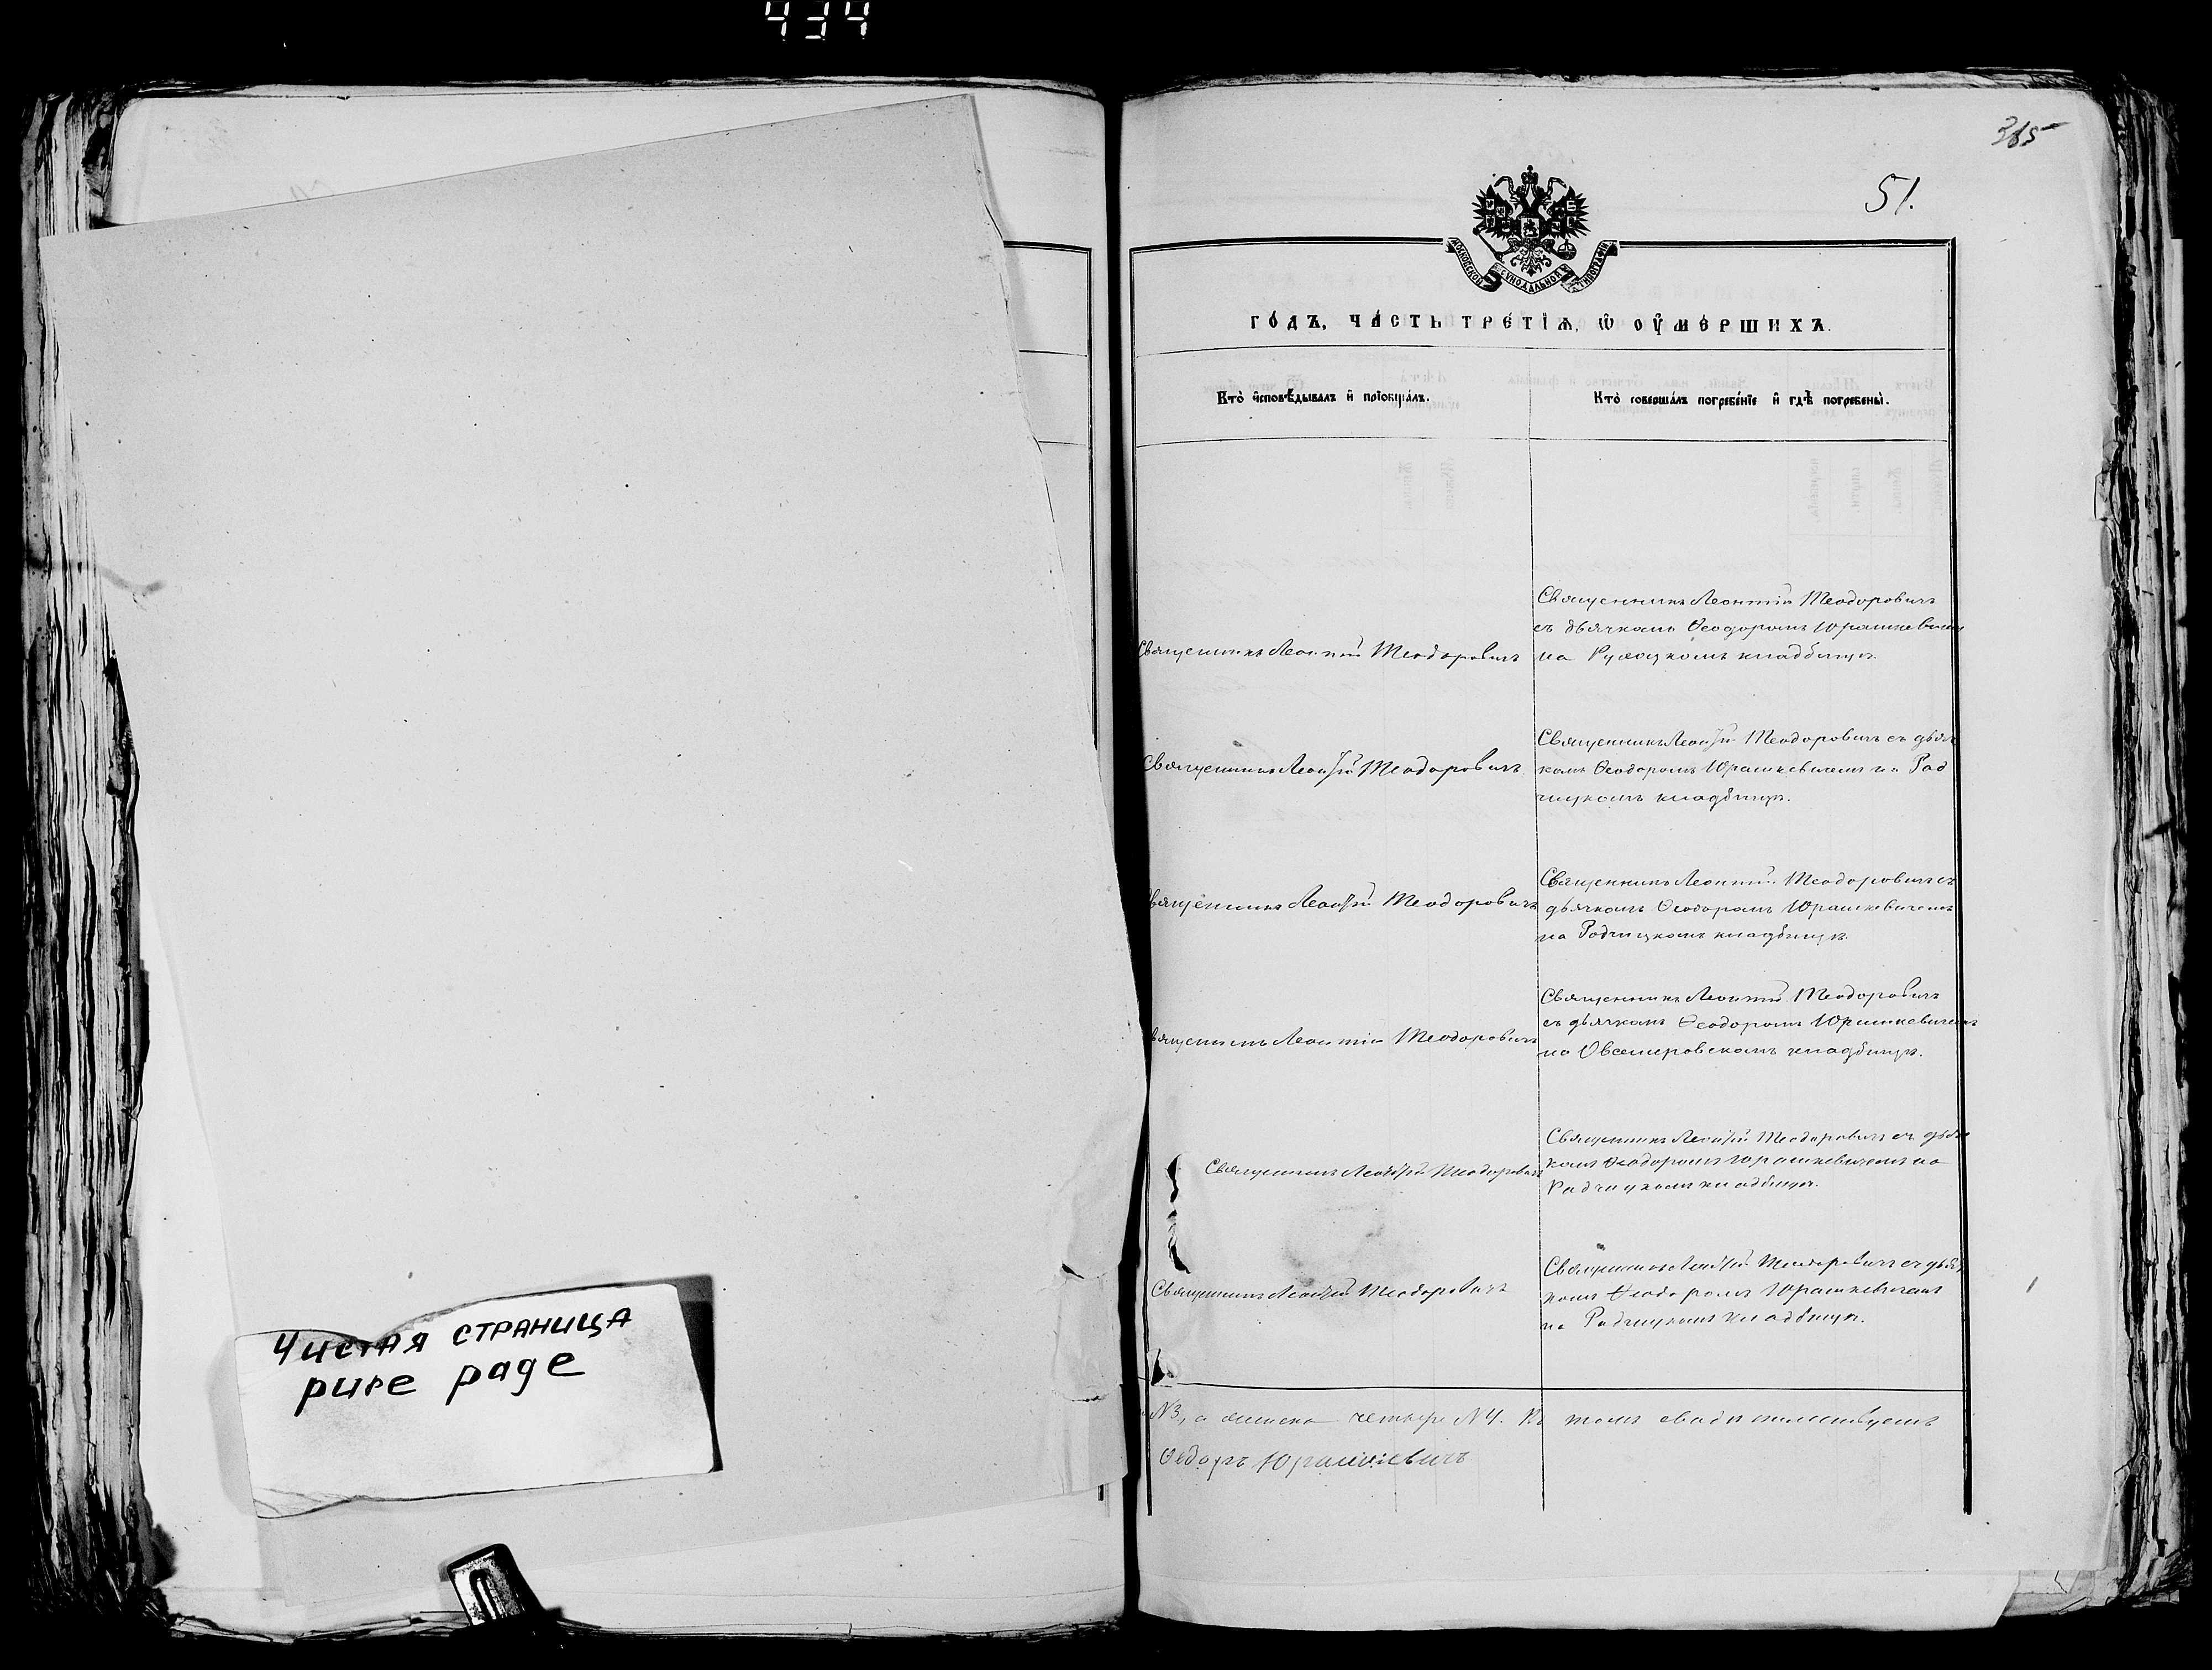 434
365
51.
МОСКОВСКОЙ СУНОДАЛЬНОЙ ТИПОГРАФІИ
ГО́ДЪ, ЧА́СТЬ ТРЕ́ТІѦ, Ѡ҆ ОУ҆МЕ́РШИХЪ.
Кто̀ и҆сповѣ́дывалъ и҆ прїобща́лъ.
Кто̀ соверша́лъ погребе́нїе и҆ гдѣ̀ погребены̀.
Священникъ Леонтій Теодоровичъ
Священникъ Леонтій Теодоровичъ
съ дьячкомъ Ѳеодоромъ Юрашкевичемъ
на кладбищѣ.
Священникъ Леонтій Теодоровичъ
Священникъ Леонтій Теодоровичъ съ дьяч
комъ Ѳеодоромъ Юрашкевичемъ на Рад
чицкомъ кладбищѣ.
Священникъ Леонтій Теодоровичъ
Священникъ Леонтій Теодоровичъ съ
дьячкомъ Ѳеодоромъ Юрашкевичемъ
на Радчицкомъ кладбищѣ.
Священникъ Леонтій Теодоровичъ
Священникъ Леонтій Теодоровичъ
съ дьячкомъ Ѳеодоромъ Юрашкевичемъ
на Овсемировскомъ кладбищѣ.
Священникъ Леонтій Теодоровичъ
Священникъ Леонтій Теодоровичъ съ дьяч
комъ Ѳеодоромъ Юрашкевичемъ на
Радчицкомъ кладбищѣ.
Священникъ Леонтій Теодоровичъ
Священникъ Леонтій Теодоровичъ съ дьяч
комъ Ѳеодоромъ Юрашкевичемъ
на Радчицкомъ кладбищѣ.
N3, а женска четыре N4. Въ томъ свидѣтельствуемъ
Ѳедоръ Юрашкевичъ
Чистая страница
pure page